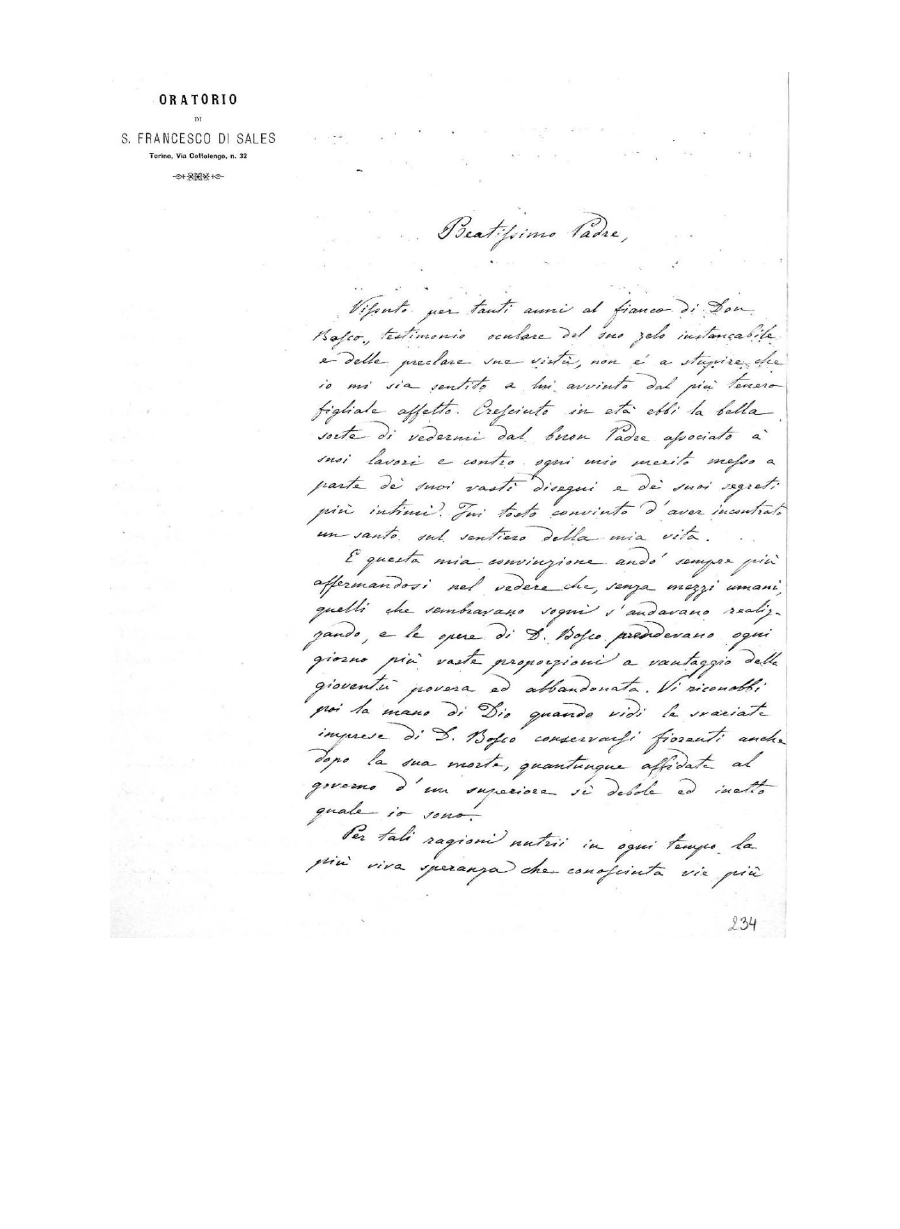 ORATORIO
DI
S. FRANCESCO DI SALES
Torino, Via Cottolengo, n. 32
Beatissimo Padre,
Vissuto per tanti anni al fianco di Don
Bosco, testimonio oculare del suo zelo instancabile
e delle preclare sue virtù, non è a stupire che
io mi sia sentito a lui avvinto dal più tenero
figliale affetto. Cresciuto in età ebbi la bella
sorte di vedermi dal buon Padre associato a'
suoi lavori e contro ogni mio merito messo a
parte de' suoi vasti disegni e de' suoi segreti
più intimi. Fui tosto convinto d'aver incontrato
un santo sul sentiero della mia vita.
E questa mia convinzione andò sempre più
affermandosi nel vedere che, senza mezzi umani,
quelli che sembravano sogni s'andavano realiz-
zando, e le opere di D. Bosco prendevano ogni
giorno più vaste proporzioni a vantaggio della
gioventù povera ed abbandonata. Vi riconobbi
poi la mano di Dio quando vidi le svariate
imprese di D. Bosco conservarsi fiorenti anche
dopo la sua morte, quantunque affidate al
governo d'un superiore sì debole ed inetto
quale io sono.
Per tali ragioni nutrii in ogni tempo la
più viva speranza che conosciuta vie più
234